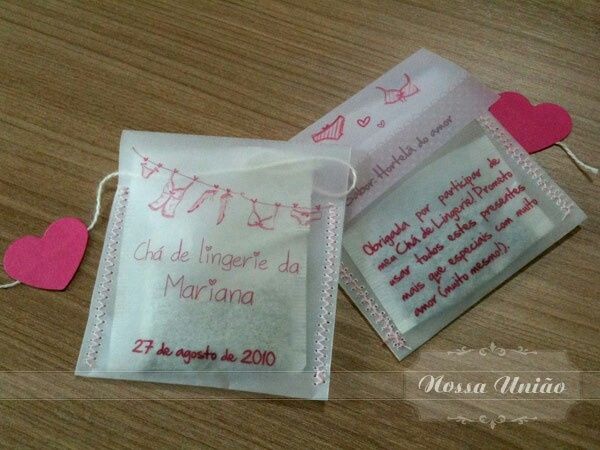 Chá de lingerie da
Mariana
27 de agosto de 2010
Sabor: Hortelã do amor
Obrigada por participar de
meu Chá de Lingerie! Prometo
usar todos estes presentes
mais que especiais com muito
amor (muito mesmo!).
Nossa União